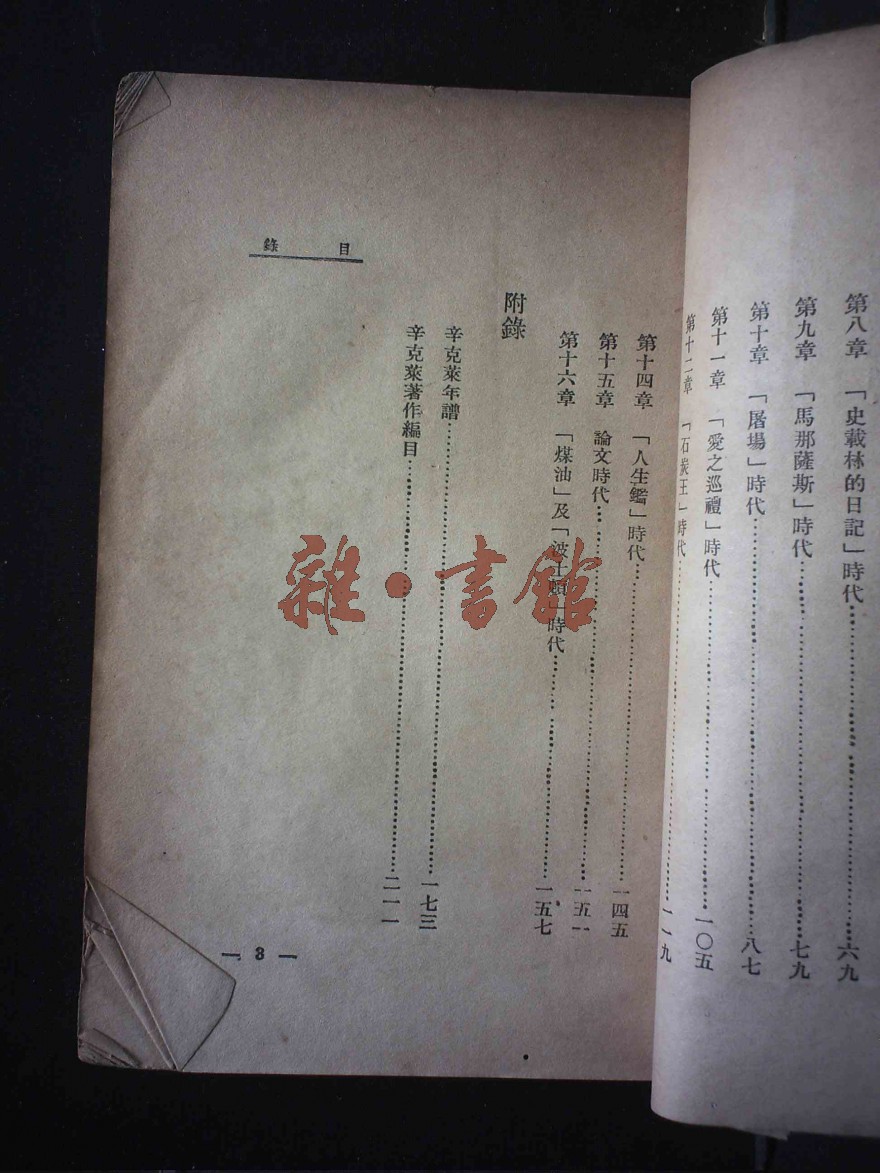 第八章 「史載林的日記」時代……六九
第九章 「馬那薩斯」時代……七九
第十章 「屠場」時代……八七
第十一章 「愛之巡禮」時代……一〇五
第十二章 「石炭王」時代……一一九
第十四章 「人生鑑」時代……一四五
第十五章 論文時代……一五一
第十六章 「煤油」及「波士頓」時代……一五七
附錄
辛克萊年譜……一七三
辛克萊著作編目……二一一
目錄
— 3 —
雜·書館